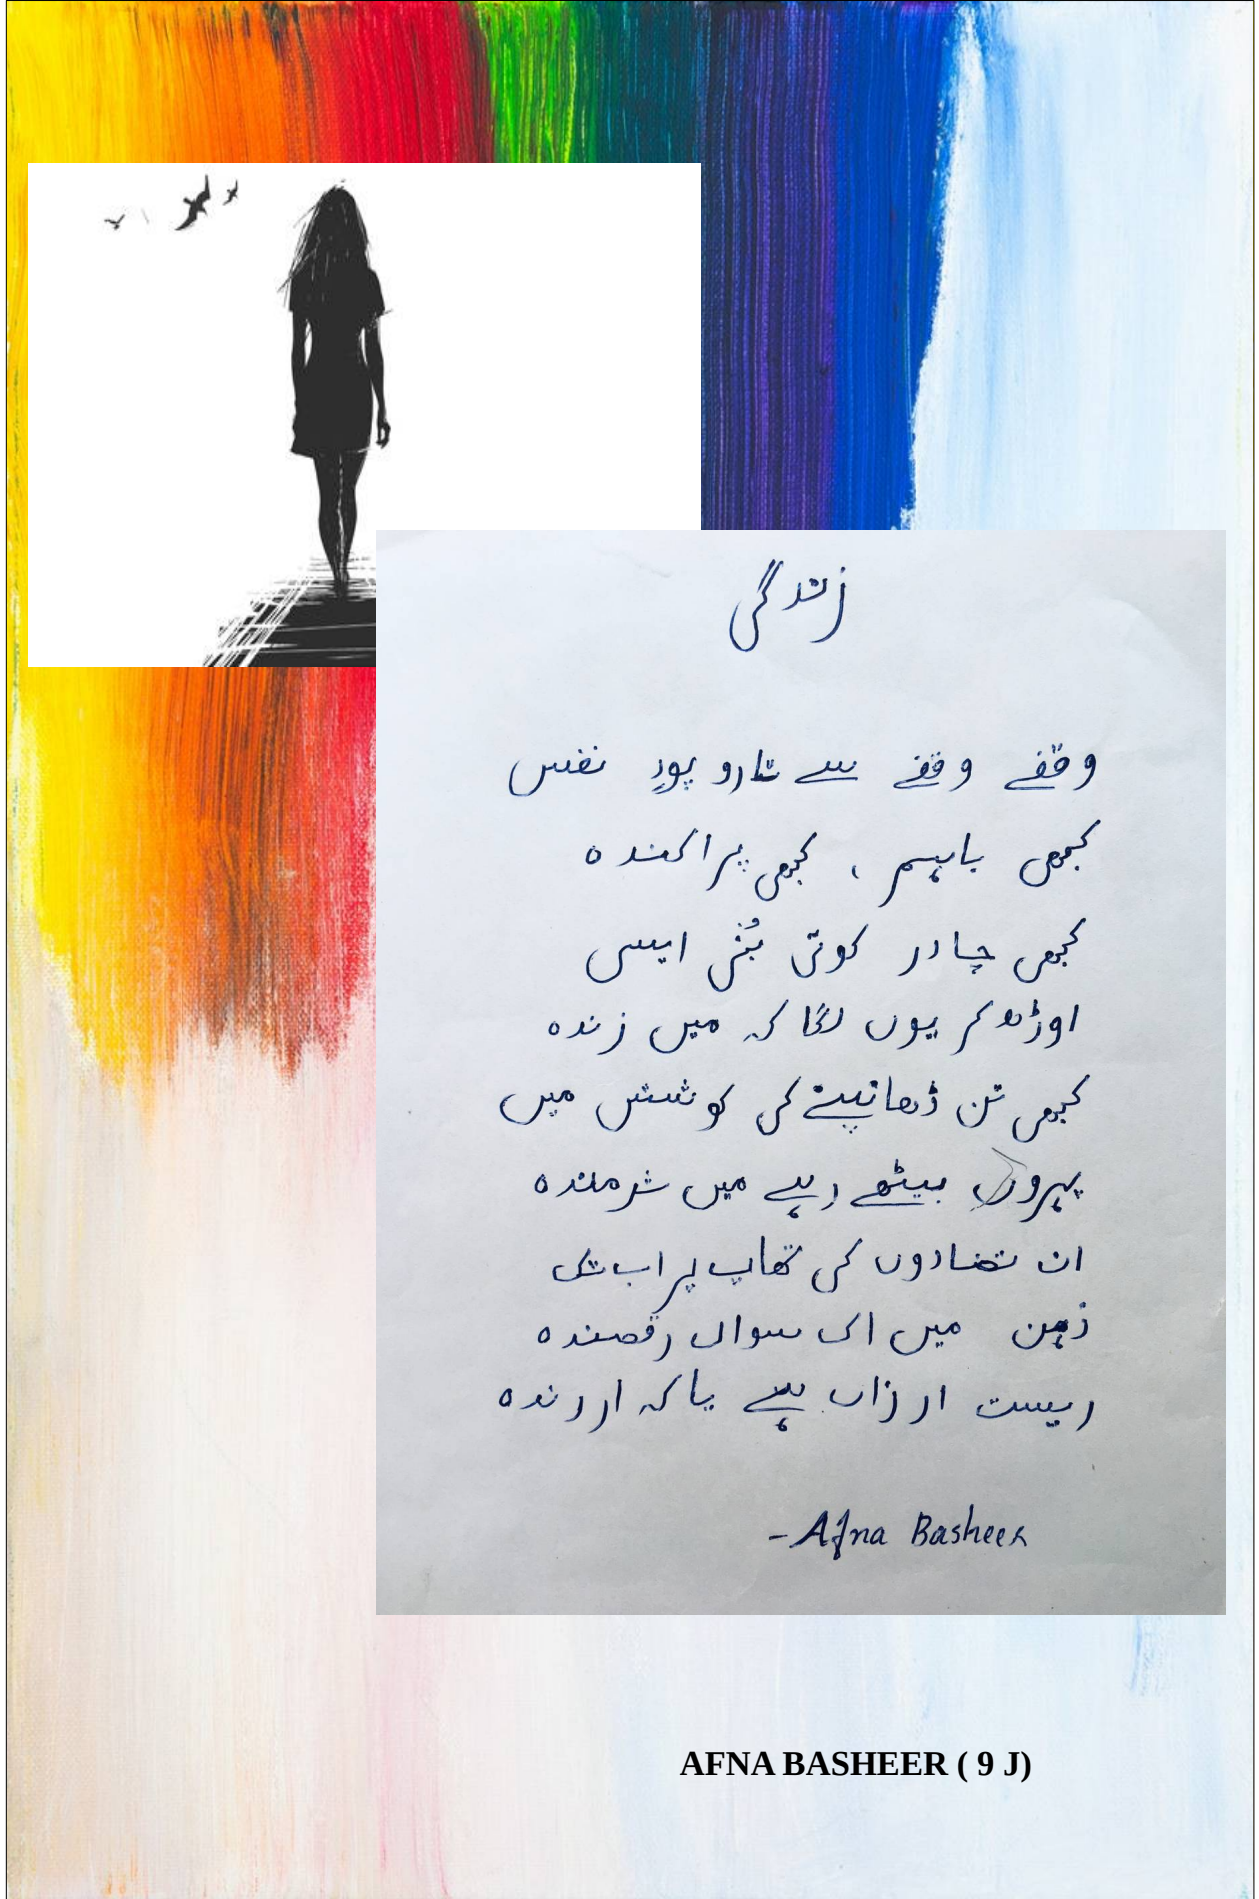 زندگی
وقفے وقفے سے تارو پودِ نفس
کبھی باہم ، کبھی پراکندہ
کبھی چادر کوئی بُنی ایسی
اوڑھ کر یوں لگا کہ میں زندہ
کبھی تن ڈھانپنے کی کوشش میں
پہروں بیٹھے رہے میں شرمندہ
ان تضادوں کی تھاپ پر اب تک
ذہن میں اک سوال رقصندہ
ریست ارزاں ہے یا کہ ارزندہ
- Afna Basheer
AFNA BASHEER ( 9 J)